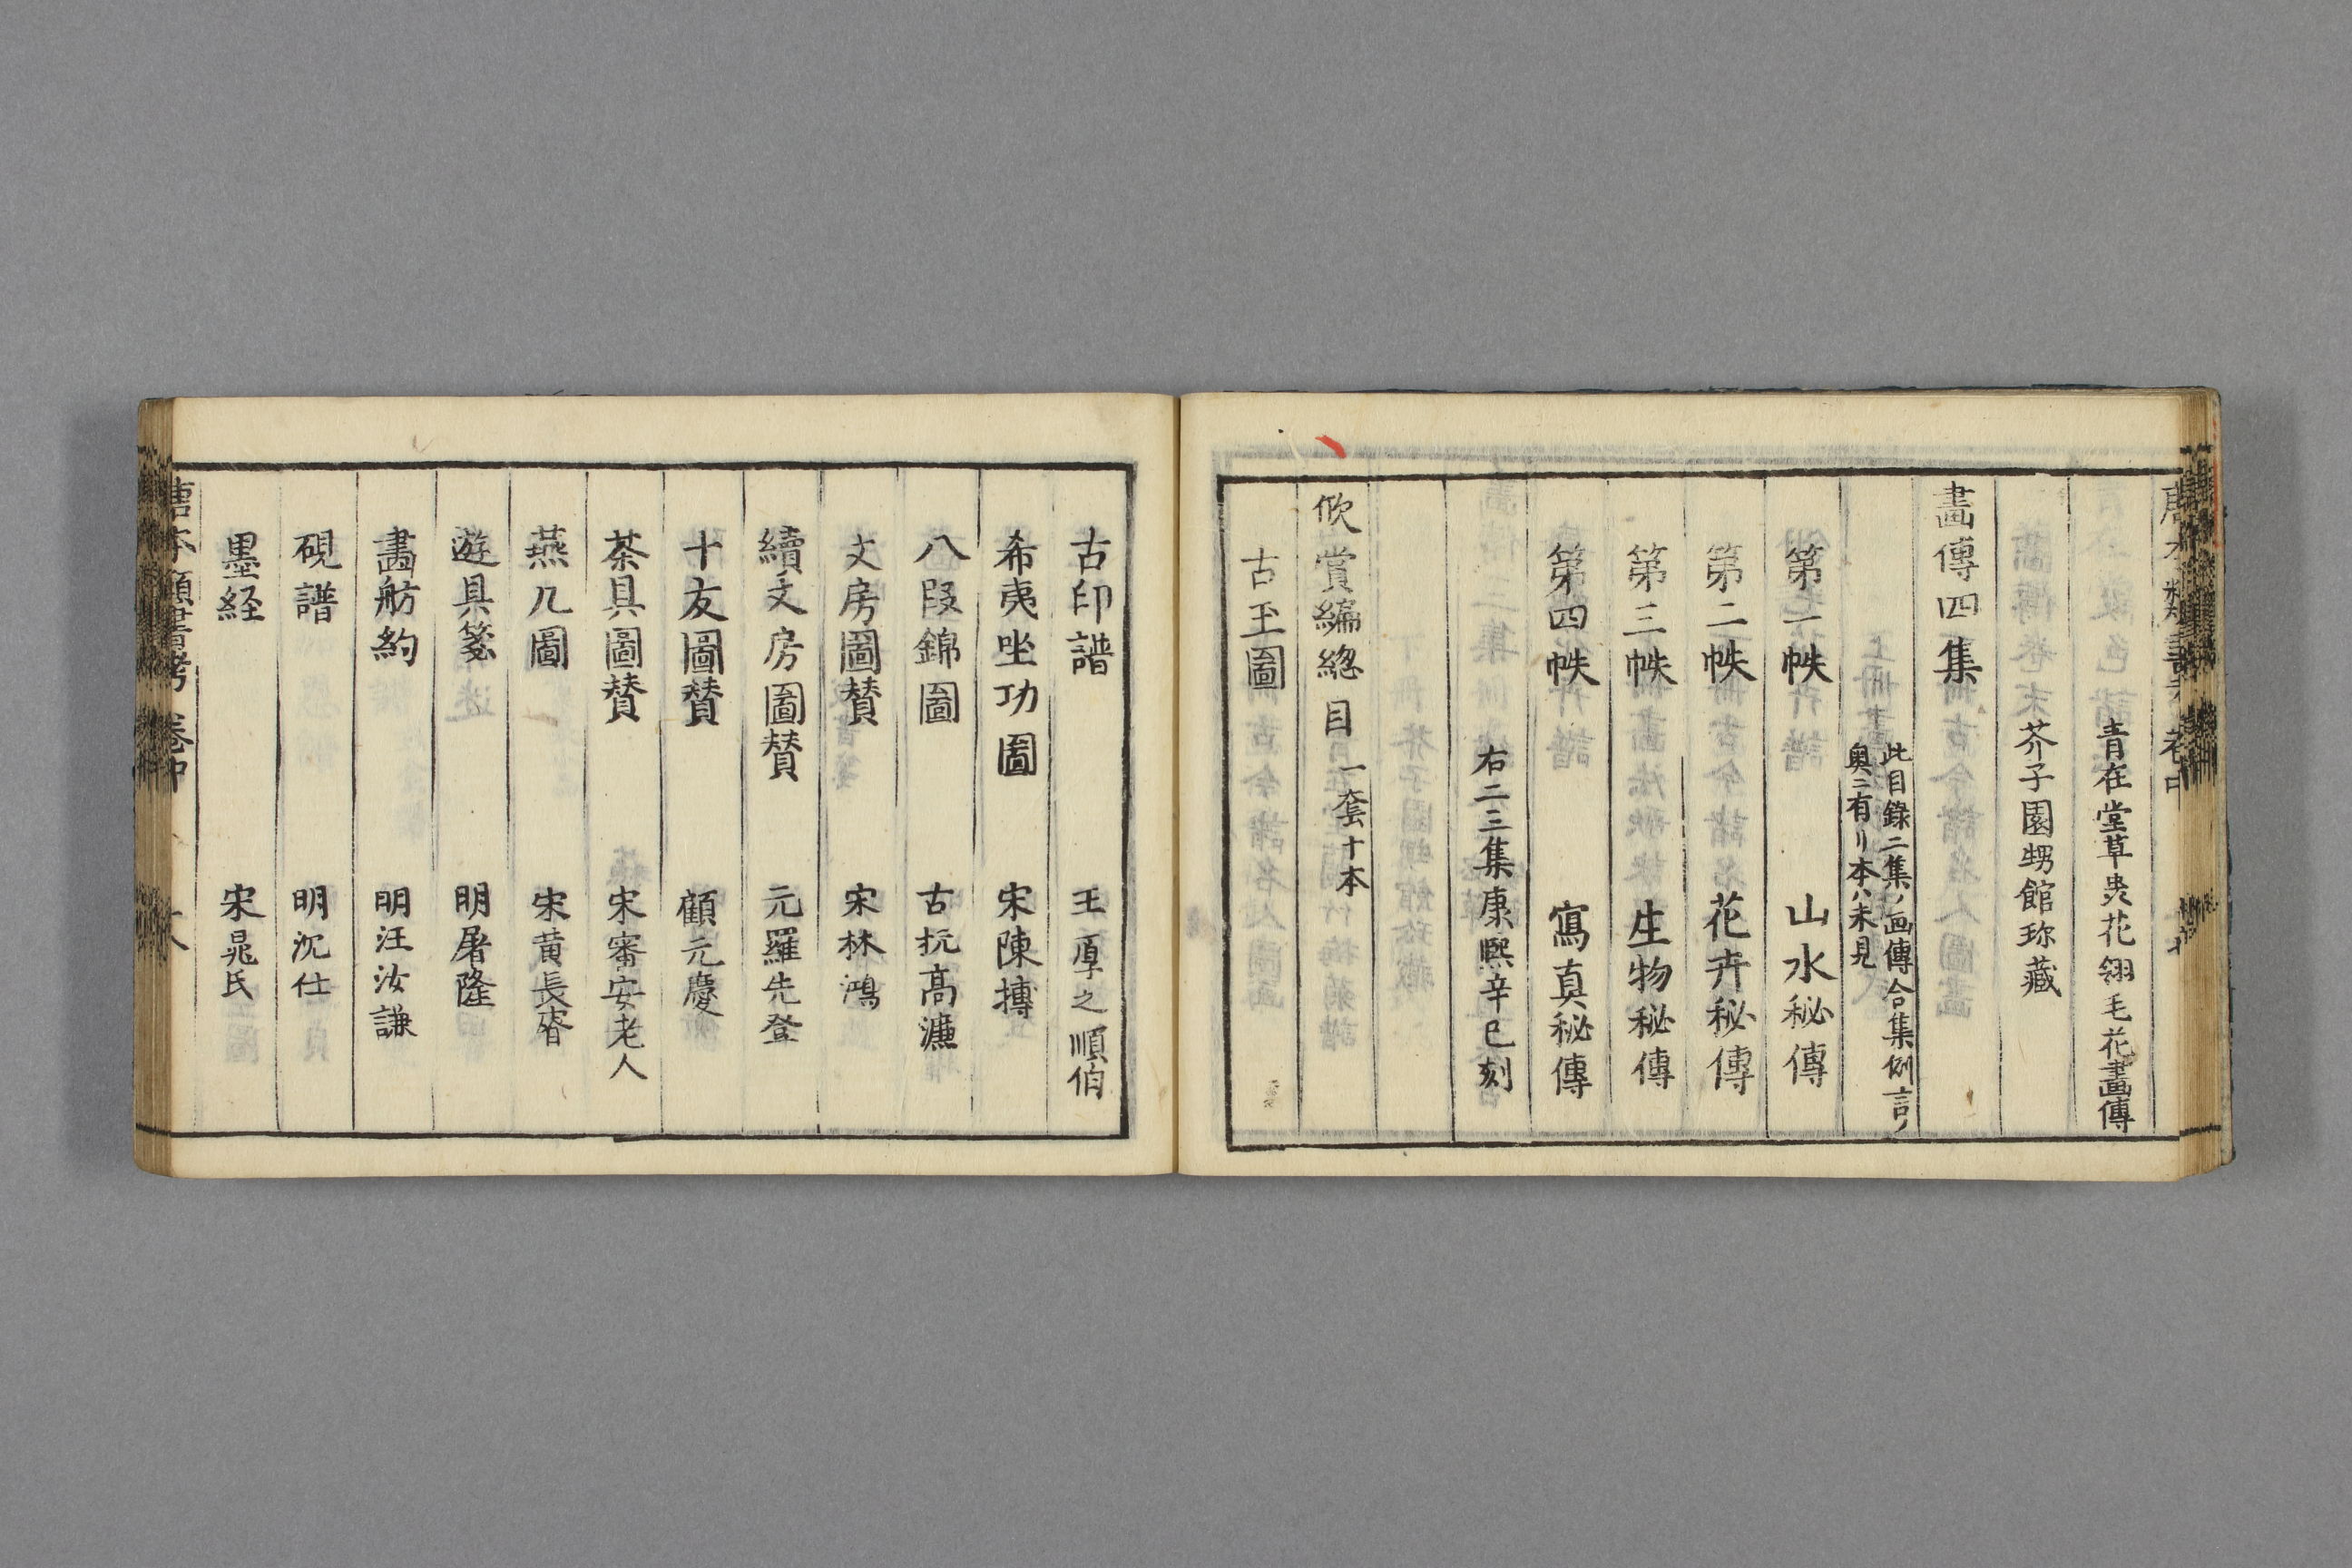 青在堂草虫花翎毛花畫傳
芥子園甥館珎藏
畫傳四集
此目錄二集ノ画傳合集例言ノ
奥ニ有リ本ハ未見
第一帙 山水秘傳
第二帙 花卉秘傳
第三帙 生物秘傳
第四帙 寫真秘傳
右二三集康熙辛巳刻
欣賞編総目 一套十本
古玉圖
古印譜 王厚之順伯
希夷坐功圖 宋陳摶
八段錦圖 古杭高濂
文房圖賛 宋林鴻
續文房圖賛 元羅先登
十友圖賛 顧元慶
茶具圖賛 宋審安老人
燕几圖 宋黄長睿
遊具箋 明屠隆
畵舫約 明汪汝謙
硯譜 明沈仕
墨経 宋晁氏
唐本類書考 卷中